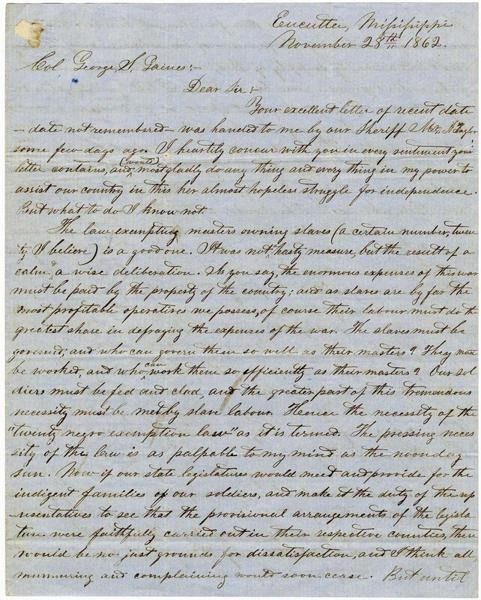 Eucutta, Mississippi
November 28th 1862.
Col George S. Gaines:-
Dear Sir:-
Your excellent letter of recent date
- date not remembered - was handed to me by our Sheriff
some few days ago. I heartily concur with you in every sentiment your
letter contains, and, (would) most gladly do any thing and every thing in my power to
assist our country in this her almost hopeless struggle for independence.
But what to do I know not.
The law exempting masters owning slaves (a certain number, twen
ty I believe) is a good one. It was not hasty measure, but the result of a
calm & wise deliberation. As you say, the enormous expenses of this war
must be paid by the property of the country; and as slaves are by far the
most profitable operatives we possess, of course their labour must do the
greatest share in defraying the expenses of the war. The slaves must be
governed; and who can govern them so well as their masters? They must
be worked, and who can work them so efficiently as their masters? Our sol
diers must be fed and clad, and the greater part of this tremendous
necessity must be met by slave labour. Hence the necessity of the
"twenty negro exemption law" as it is termed. The pressing neces
sity of the law is as palpable to my mind as the noonday
sun. Now if our state legislatures would meet and provide for the
indigent families of our soldiers, and make it the duty of the rep
resentatives to see that the provisional arrangements of the legisla
ture were faithfully carried out in their respective counties, there
would be no just grounds for dissatisfaction, and I think all
murmuring and complaining would soon cease. But until